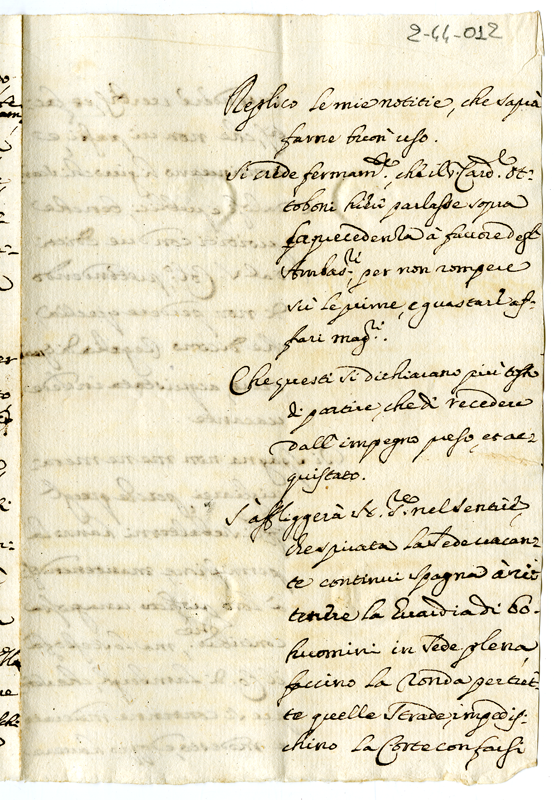 2-44-012
Replico le mie notitie, che saprà
farne buon uso.
Si crede fermam.te, che il S. Card.le Ot-
toboni hieri parlasse sopra
la precedenza à favore degl'
Ambas.ri per non rompere
sù le prime, e guastar l'af-
fari mag.ri.
Che questi si dichiarano più tosto
di partire, che di recedere
dall'impegno preso, et ac-
quistato.
S'affliggerà nel sentire,
che spirata la Sede vacan-
te continui Spagna à ri-
tenere la Guardia di 60.
huomini in Sede plena,
faccino la Ronda per tut-
te quelle Strade, impedis-
chino la Corte con farsi